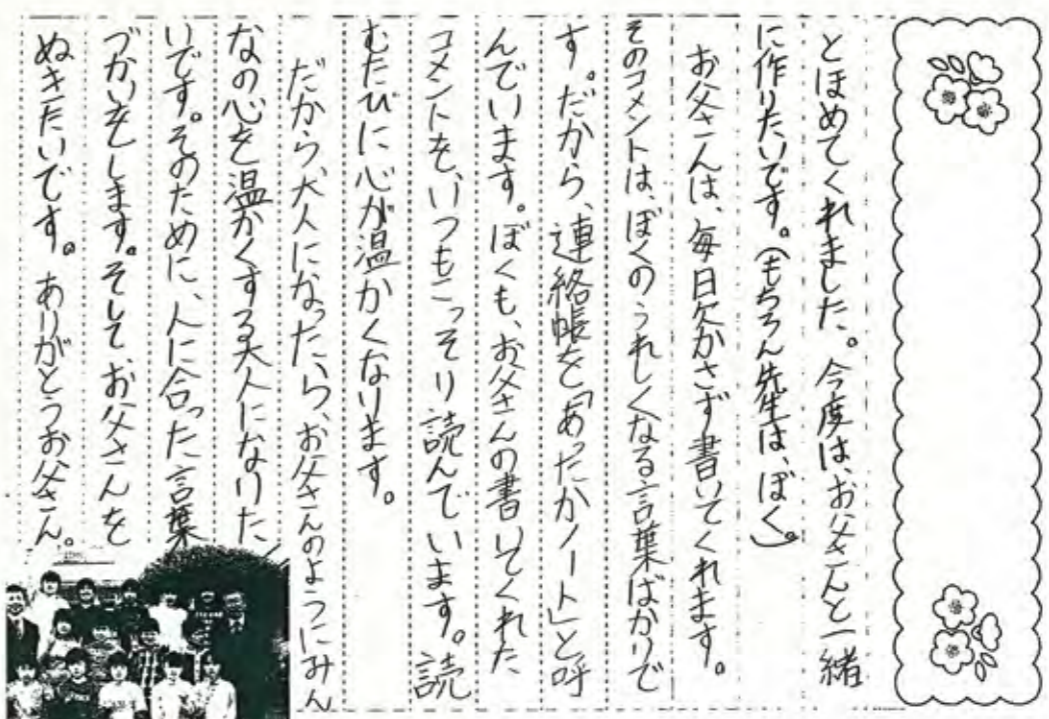 とほめてくれました。今度は、お父さんと一緒
に作りたいです。(もちろん先生は、ぼく。)
お父さんは、毎日欠かさず書いてくれます。
そのコメントは、ぼくのうれしくなる言葉ばかりで
す。だから、連絡帳を「あったかノート」と呼
んでいます。ぼくも、お父さんの書いてくれた
コメントを、いつもこっそり読んでいます。読
むたびに心が温かくなります。
だから、大人になったら、お父さんのようにみん
なの心を温かくする大人になりた
いです。そのために、人に合った言葉
づかいをします。そして、お父さんを
ぬきたいです。ありがとうお父さん。